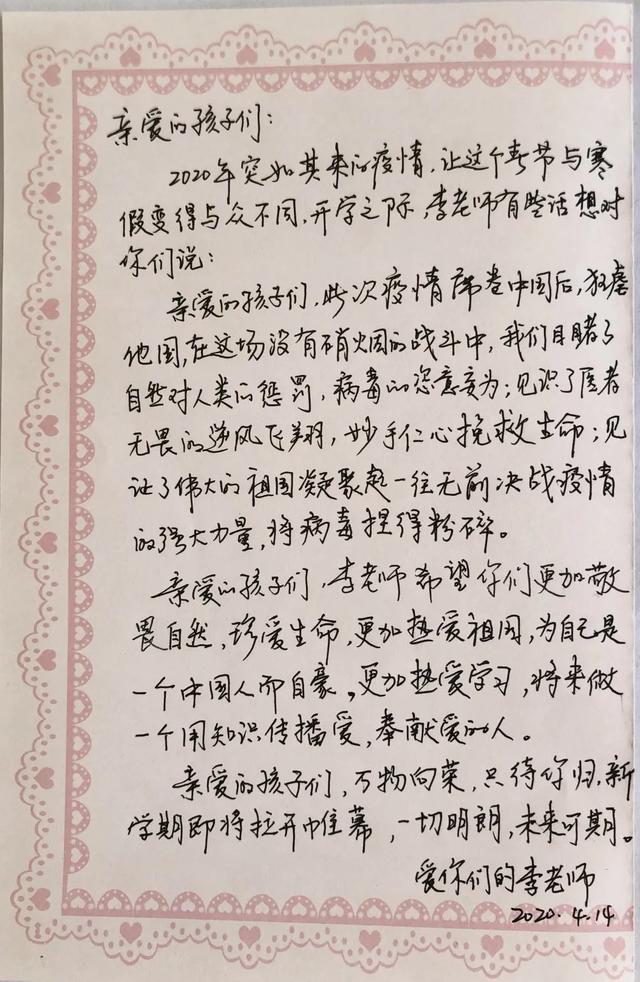 亲爱的孩子们：
2020年突如其来的疫情，让这个春节与寒
假变得与众不同，开学之际，李老师有些话想对
你们说：
亲爱的孩子们，此次疫情席卷中国后，狂虐
他国，在这场没有硝火烟的战斗中，我们目睹了
自然对人类的惩罚，病毒的恣意妄为；见识了医者
无畏的逆风飞翔，妙手仁心挽救生命；见
证了伟大的祖国凝聚起一往无前决战疫情
的强大力量，将病毒捏得粉碎。
亲爱的孩子们，李老师希望你们更加敬
畏自然，珍爱生命，更加热爱祖国，为自己是
一个中国人而自豪，更加热爱学习，将来做
一个用知识传播爱，奉献爱的人。
亲爱的孩子们，万物向荣，只待你归，新
学期即将拉开帷幕，一切明朗，未来可期。
爱你们的李老师
2020.4.14